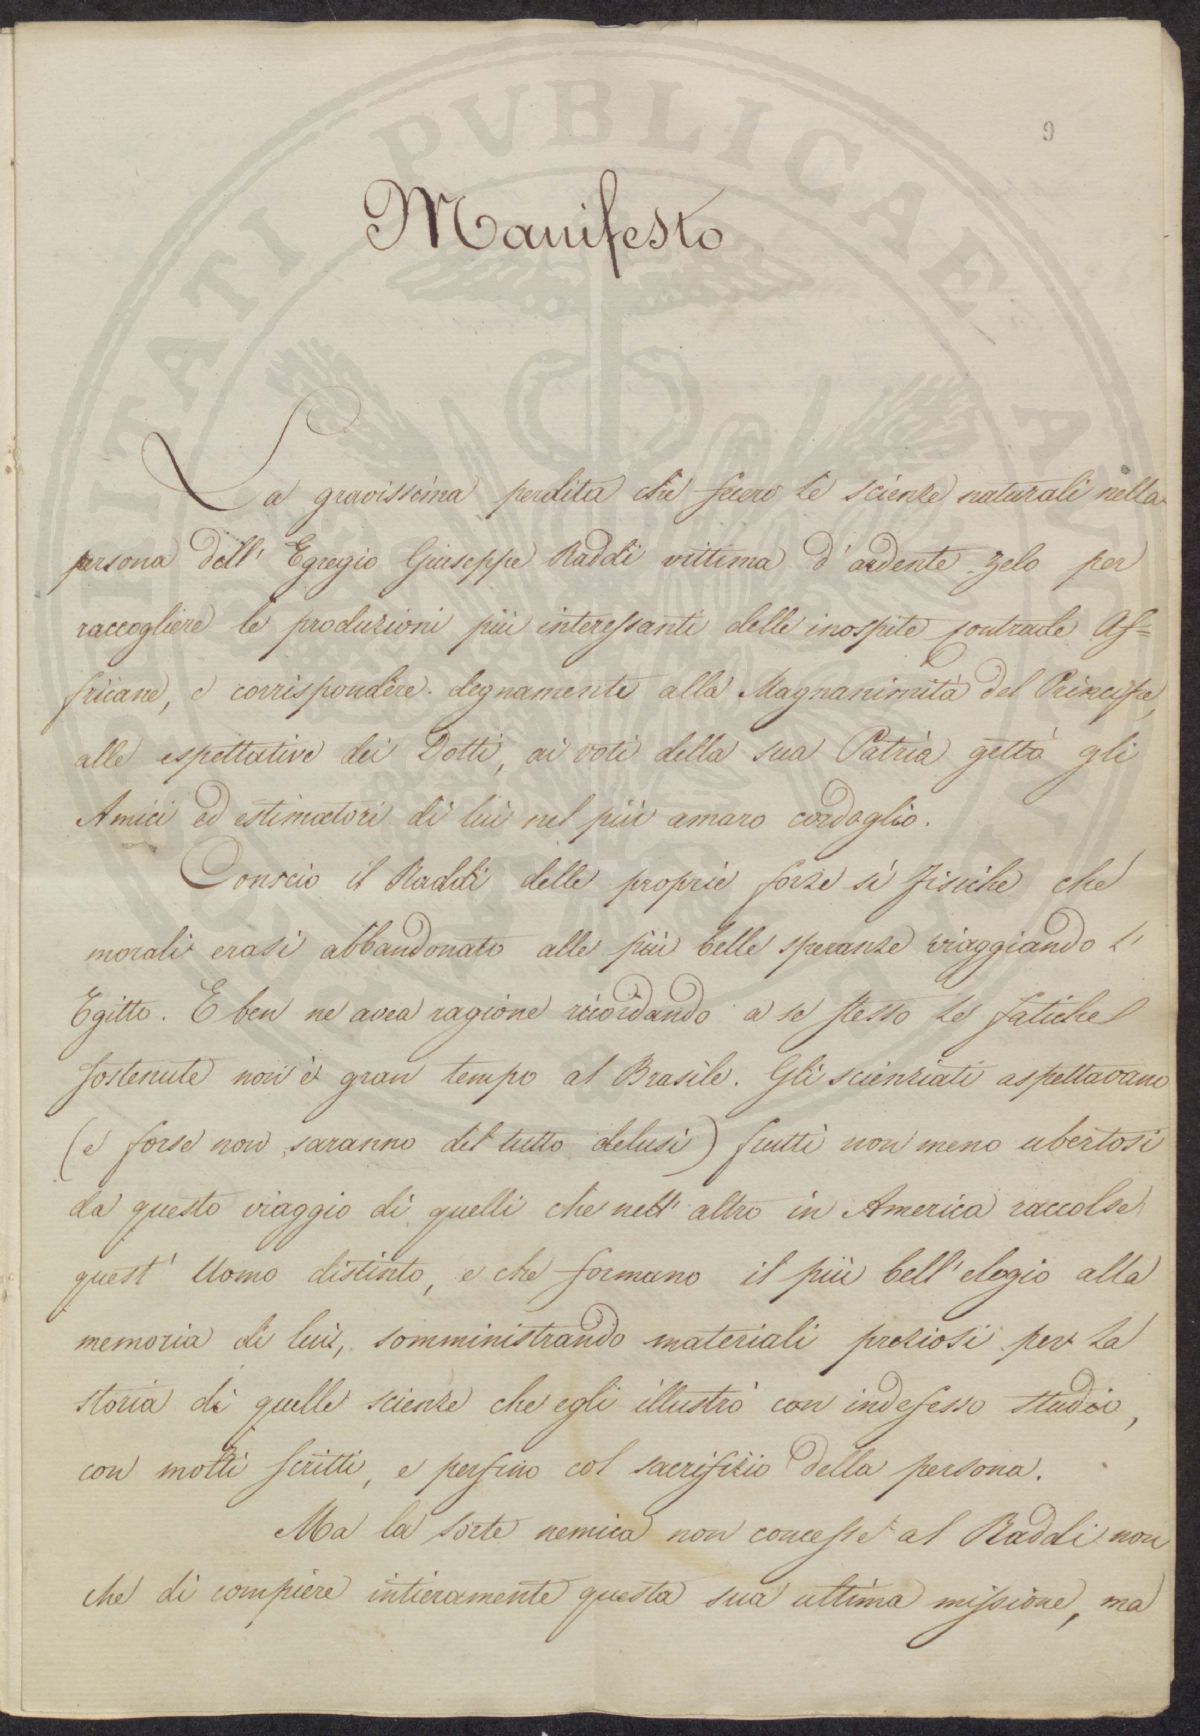 9
Manifesto
La gravissima perdita che fecero le scienze naturali nella
persona dell' Egregio Giuseppe Raddi vittima d' ardente zelo per
raccogliere le produzioni più interessanti delle inospite contrade Af=
fricane, e corrispondere degnamente alla Magnanimità del Principe,
alle espettative dei Dotti, ai voti della sua Patria gettò gli
Amici ed estimatori di lui nel più amaro cordoglio.
Conscio il Raddi delle proprie forze sì fisiche che
morali erasi abbandonato alle più belle speranze viaggiando l'
Egitto. E ben ne avea ragione ricordando a se stesso le fatiche
sostenute non è gran tempo al Brasile. Gli scienziati aspettavano
(e forse non saranno del tutto delusi) frutti non meno ubertosi
da questo viaggio di quelli che nell' altro in America raccolse
quest' Uomo distinto, e che formano il più bell' elogio alla
memoria di lui, somministrando materiali preziosi per la
storia di quelle scienze che egli illustrò con indefesso studio,
con molti scritti, e perfino col sacrifizio della persona.
Ma la sorte nemica non concesse al Raddi non
che di compiere intieramente questa sua ultima missione, ma